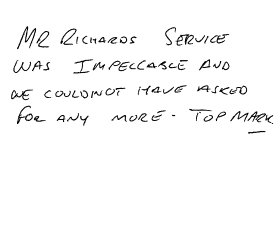 MR RICHARDS SERVICE
WAS IMPECCABLE AND
WE COULDNOT HAVE ASKED
FOR ANY MORE - TOP MARK